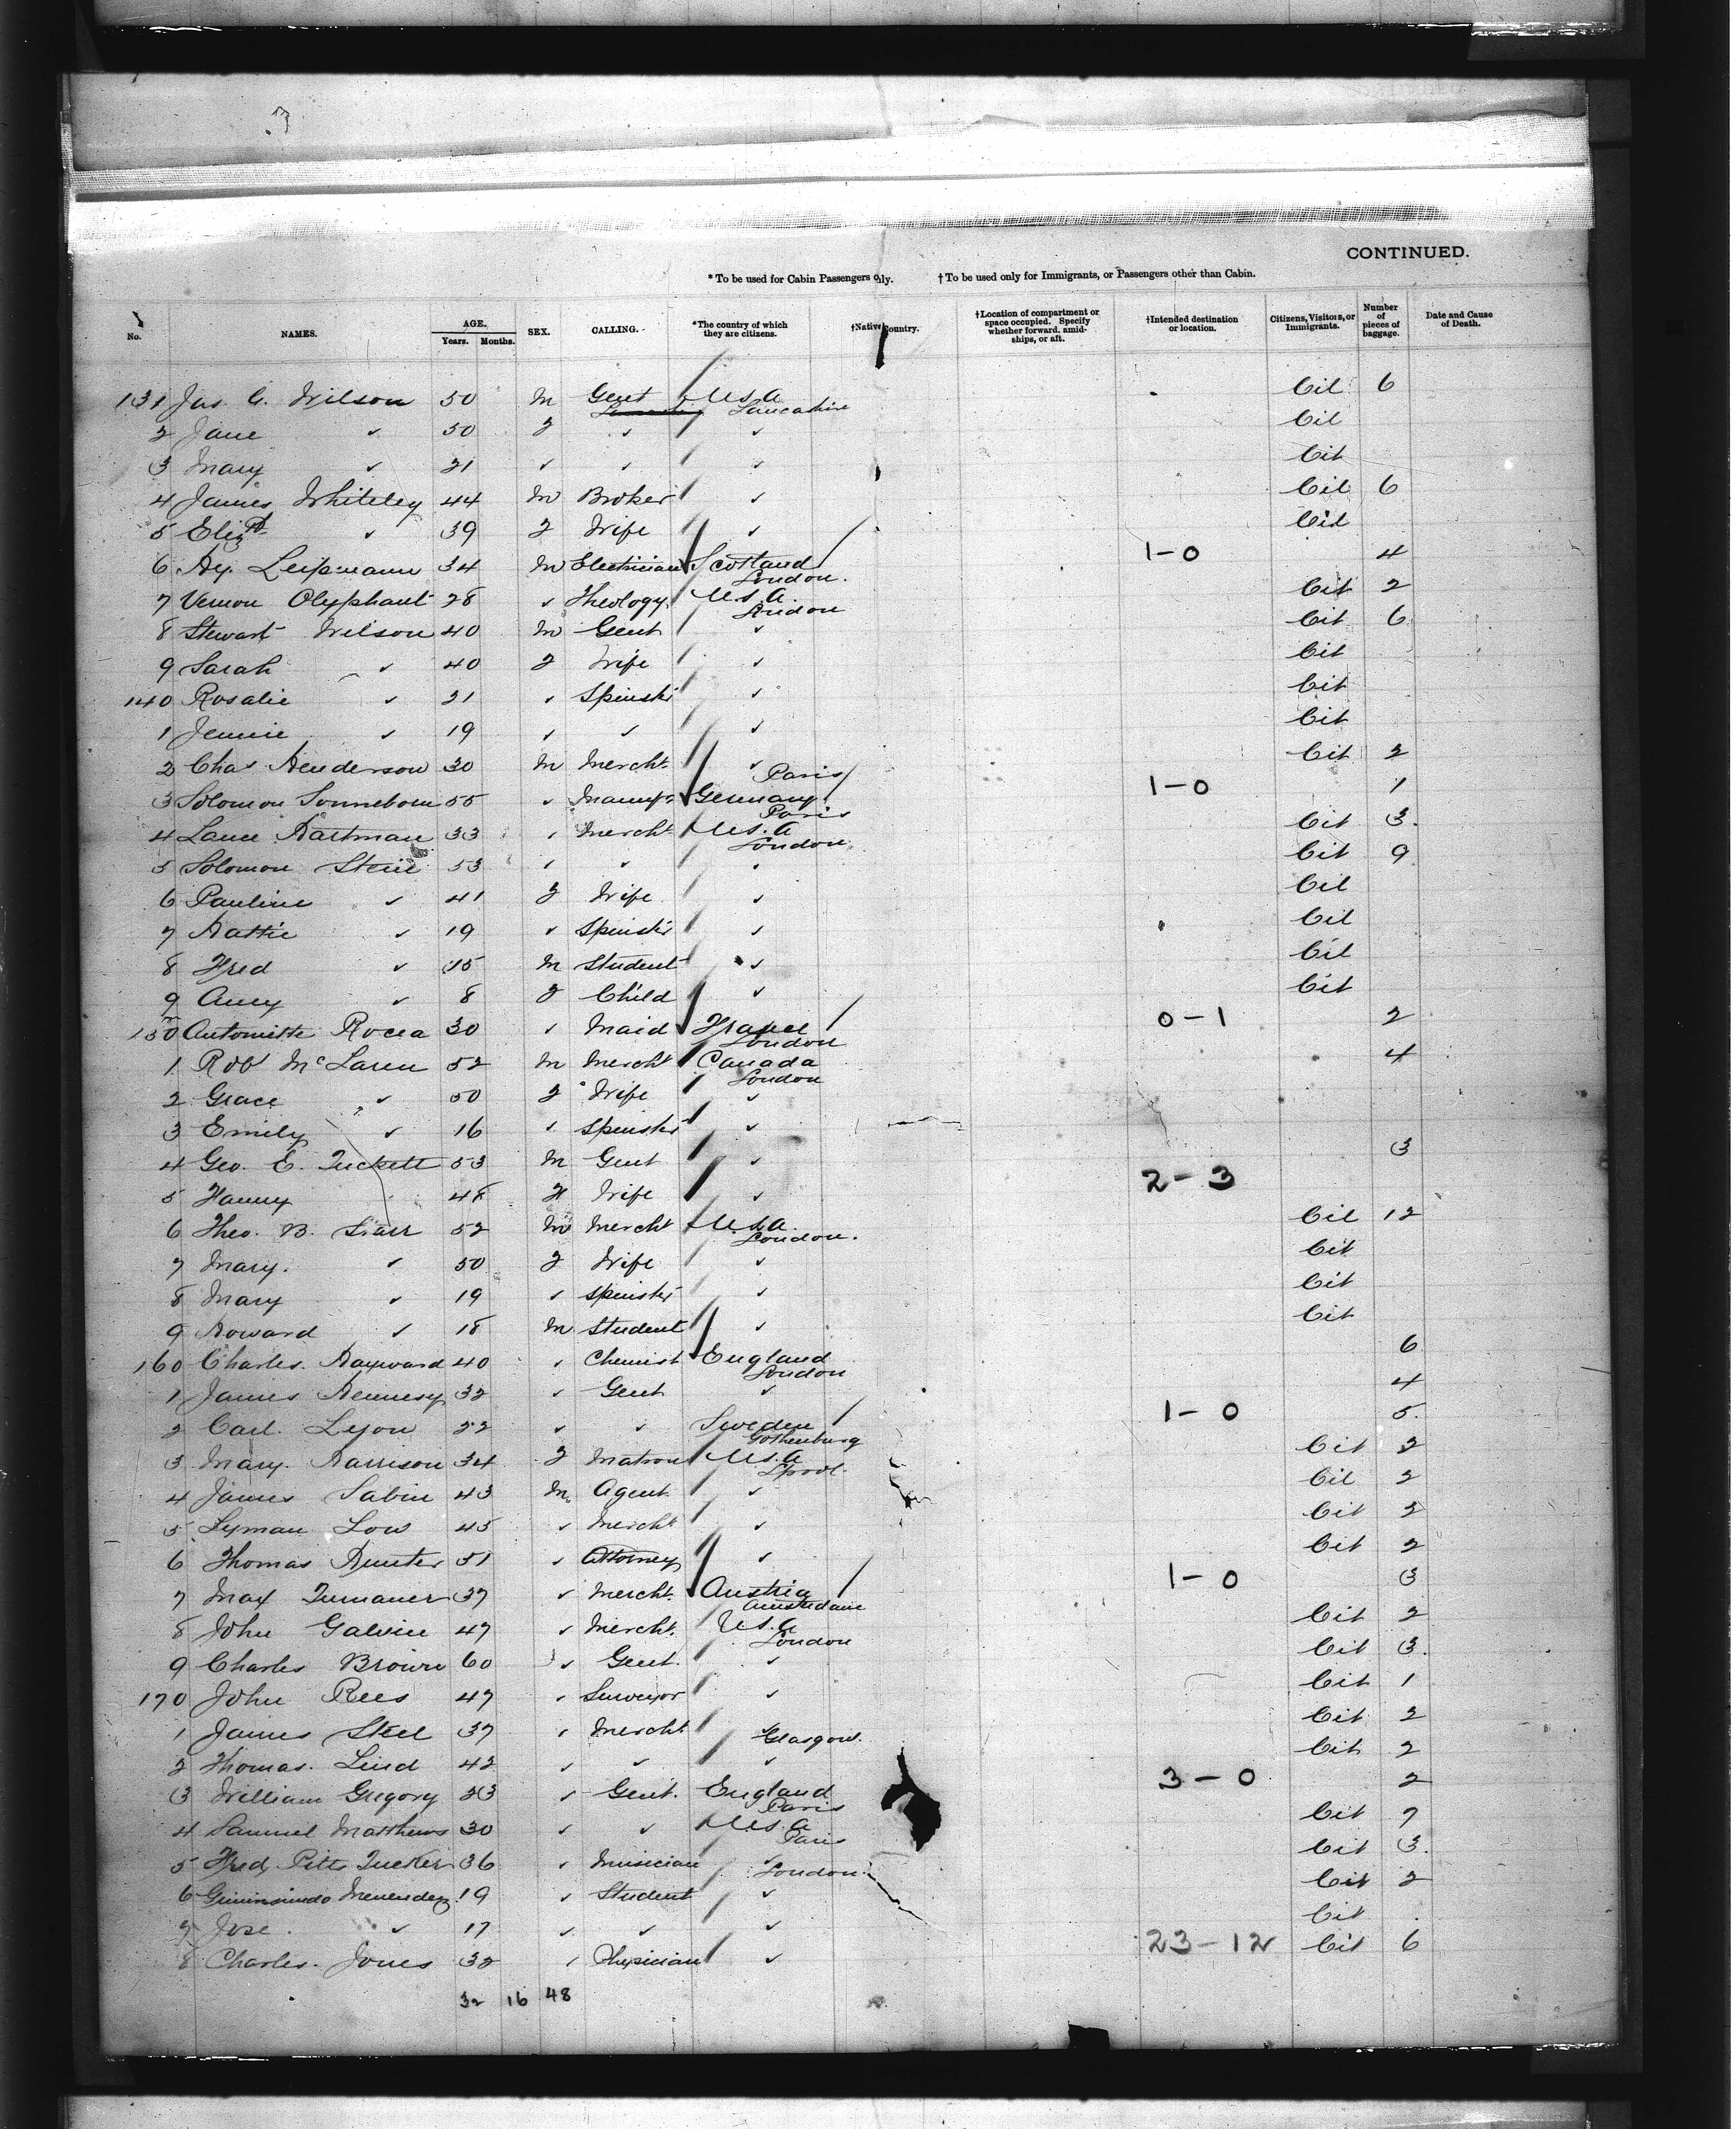 3
CONTINUED.
* To be used for Cabin Passengers only. † To be used only for Immigrants, or Passengers other than Cabin.
No. NAMES. AGE. Years. Months. SEX. CALLING. *The country of which they are citizens. †Native Country. †Location of compartment or space occupied. Specify whether forward, amid-ships, or aft. †Intended destination or location. Citizens, Visitors, or Immigrants. Number of pieces of baggage. Date and Cause of Death.
131 Jas. C. Wilson 50 M Gent U.S.A Lancashire Cit 6
2 Jane " 50 F " " Cit
3 Mary " 21 " " " Cit
4 James Whiteley 44 M Broker " Cit 6
5 Elizth " 39 F Wife " Cit
6 Hy. Leipmann 34 M Electrician Scotland London. 1-0 4
7 Vernon Olyphant 28 " Theology U.S.A. London Cit 2
8 Stewart Wilson 40 M Gent " Cit 6
9 Sarah " 40 F Wife " Cit
140 Rosalie " 21 " Spinster " Cit
1 Jennie " 19 " " " Cit
2 Chas Henderson 30 M Mercht. " Paris Cit 2
3 Solomon Sonneborn 55 " Manufr Germany Paris 1-0 1
4 Lance Hartman 33 " Mercht U.S.A London Cit 3.
5 Solomon Stein 53 " " " Cit 9
6 Pauline " 41 F Wife " Cit
7 Hattie " 19 " Spinster " Cit
8 Fred " 15 M Student " Cit
9 Amy " 8 F Child " Cit
150 Antoinette Rocca 30 " Maid France London 0-1 2
1 Robt McLaren 52 M Mercht Canada London 4
2 Grace " 50 F Wife "
3 Emily " 16 " Spinster "
4 Geo. E. Tuckett 53 M Gent " 3
5 Fanny " 48 F Wife " 2-3
6 Theo. B. Starr 52 M Mercht U.S.A. London. Cit 12
7 Mary. " 50 F Wife " Cit
8 Mary " 19 " Spinster " Cit
9 Howard " 18 M Student " Cit
160 Charles. Hayward 40 " Chemist England London 6
1 James Hennesy 32 " Gent " 4
2 Carl. Lyon 22 " " Sweden Gothenburg 1-0 5.
3 Mary. Harrison 34 F Matron U.S.A Lpool. Cit 2
4 James Sabin 43 M. Agent " Cit 2
5 Lyman Low 45 " Mercht " Cit 2
6 Thomas Hunter 51 " Attorney " Cit 2
7 Max 37 " Mercht. Austria Amsterdam 1-0 3
8 John Galvin 47 " Mercht. U.S.A London Cit 2
9 Charles Brown 60 " Gent. " Cit 3.
170 John Rees 47 " Surveyor " Cit 1
1 James Steel 37 " Mercht " Glasgow. Cit 2
2 Thomas. Lind 42 " " " Cit 2
3 William Gregory 23 " Gent. England Paris 3-0 2
4 Samuel Matthews 30 " " U.S.A Paris Cit 7
5 Fred Pitts Tucker 36 " Musician " London. Cit 3.
6 Menendez 19 " Student " Cit 2
7 Jose. " 17 " " " Cit
8 Charles. Jones 32 " Physician " 23-12 Cit 6
32 16 48